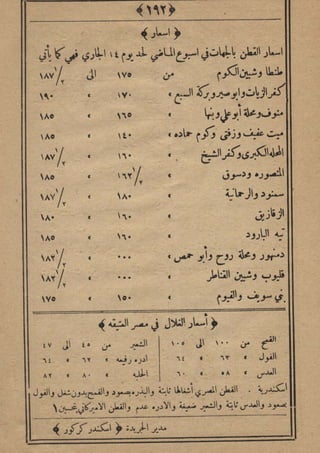 ﴿ ١٩٢ ﴾
﴿ اسعار ﴾
اسعار القطن بالجهات في اسبوع الماضي لحد يوم ١٤ الجاري فهي كما يأتي
طنطا وشبين الكوم من ١٧٥ الى ١٨٧١/٢
كفر الزيات وابو صير وبركة السبع » ١٧٠ » ١٩٠
منوف ومحلة أبو علي وبنها » ١٦٥ » ١٨٥
ميت عفيف وزفتى وكوم حماده » ١٤٠ » ١٨٥
المحله الكبرى وكفر الشيخ » ١٦٠ » ١٨٧١/٢
المنصوره ودسوق » ١٦٢١/٢ » ١٨٥
سمنود والرحمانية » ١٨٠ » ١٨٧١/٢
الزقازيق » ١٦٠ » ١٨٠
تيه البارود » ١٦٠ » ١٨٥
دمنهور ومحلة روح وأبو حمص » ٠٠٠ » ١٨٢١/٢
قليوب وشبين القناطر » ٠٠٠ » ١٨٢١/٢
بني سويف والفيوم » ١٥٠ » ١٧٥
﴿ أسعار الغلال في مصر العتيقه ﴾
القمح من ١٠٠ الى ١٠٥ الشعير من ٤٥ الى ٤٧
الفول » ٦٣ » ٦٤ ادره رفيعه » ٦٢ » ٦٤
العدس » ٥٨ » ٦٠ الحلبه » ٨٠ » ٨٢
اسكندرية . القطن المصري أشغالها ثابتة والبذره بصعود والقمح بدون شغل والفول
بصعود والعدس ثابتة والشعير ضعيفة والادره عدم والقطن الاميركاني بتحسين ١
مدير الجريدة ﴿ اسكندر كركور ﴾